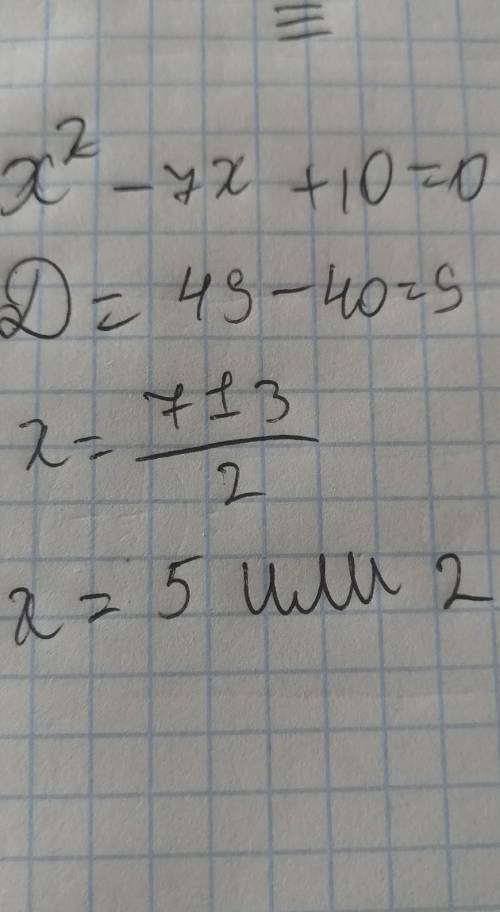 x² - 7x + 10 = 0
D = 49 - 40 = 9
x = (7 ± 3) / 2
x = 5 или 2